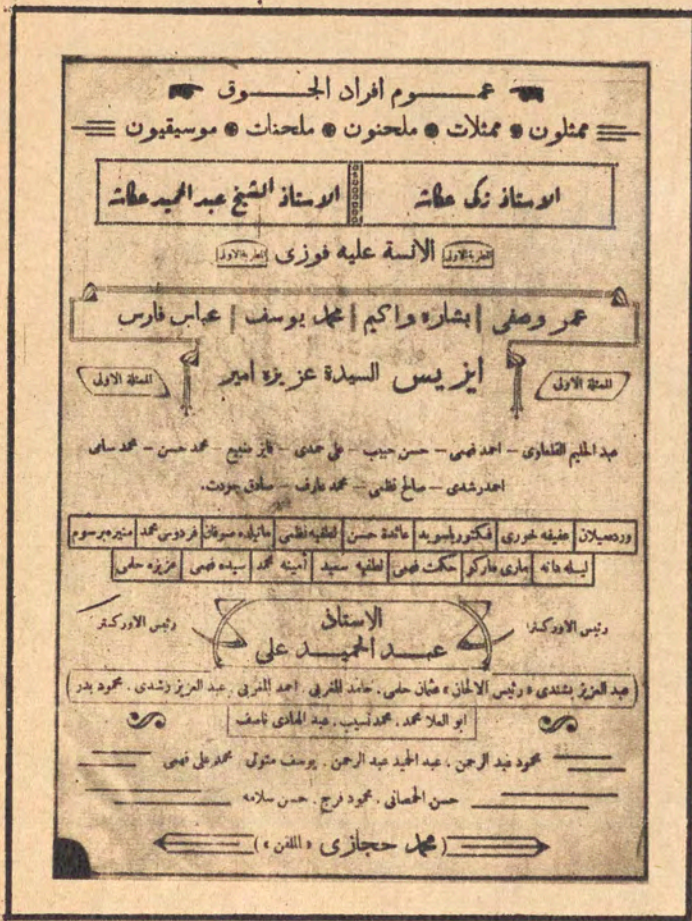 عمــــوم افراد الجــــوق
ممثلون • ممثلات • ملحنون • ملحنات • موسيقيون
الاستاذ زكى عكاشه الاستاذ الشيخ عبد الحميد عكاشه
المطربة الاولى الانسة عليه فوزى المطربة الاولى
عمر وصفى | بشاره واكيم | محمد يوسف | عباس فارس
الممثلة الاولى ايزيس السيدة عزيزه امير الممثلة الاولى
عبد الحليم القلعاوى – احمد فهمى – حسن حبيب – على حمدى – فايز منيع – محمد حسن – محمد سامى
احمد رشدى – صالح نظمى – محمد عارف – صادق جودت.
وردهميلان | عفيفه خورى | فكتوريا سويد | عائدة حسن | لطفيه نظمى | ماتيلده صوفان | فردوس محمد | منيره برسوم
ليله دانه | مارى ماركو | حكمت فهمى | لطفيه سعيد | أمينه محمد | سيده فهمى | عزيزه حلمى
رئيس الاوركسترا الاستاذ رئيس الاوركستر
عبد الحميد على
عبد العزيز بشندى «رئيس الالحان» عثمان حلمى . حامد المغربى . احمد المغربى . عبد العزيز رشدى . محمود بدر
ابو العلا محمد . محمد نسيب . عبد الهادى ناصف
محمود عبد الرحمن . عبد الحميد عبد الرحمن . يوسف متولى محمد على فهمى
حسن الحصانى . محمود فرج . حسن سلامه
( محمد حجازى «الملقن» )